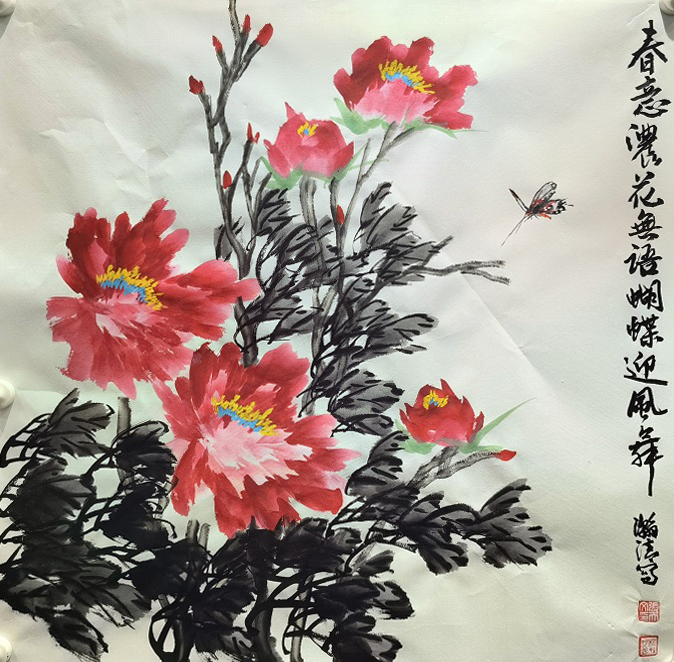 春意濃花無語蝴蝶迎風舞
瀚清寫